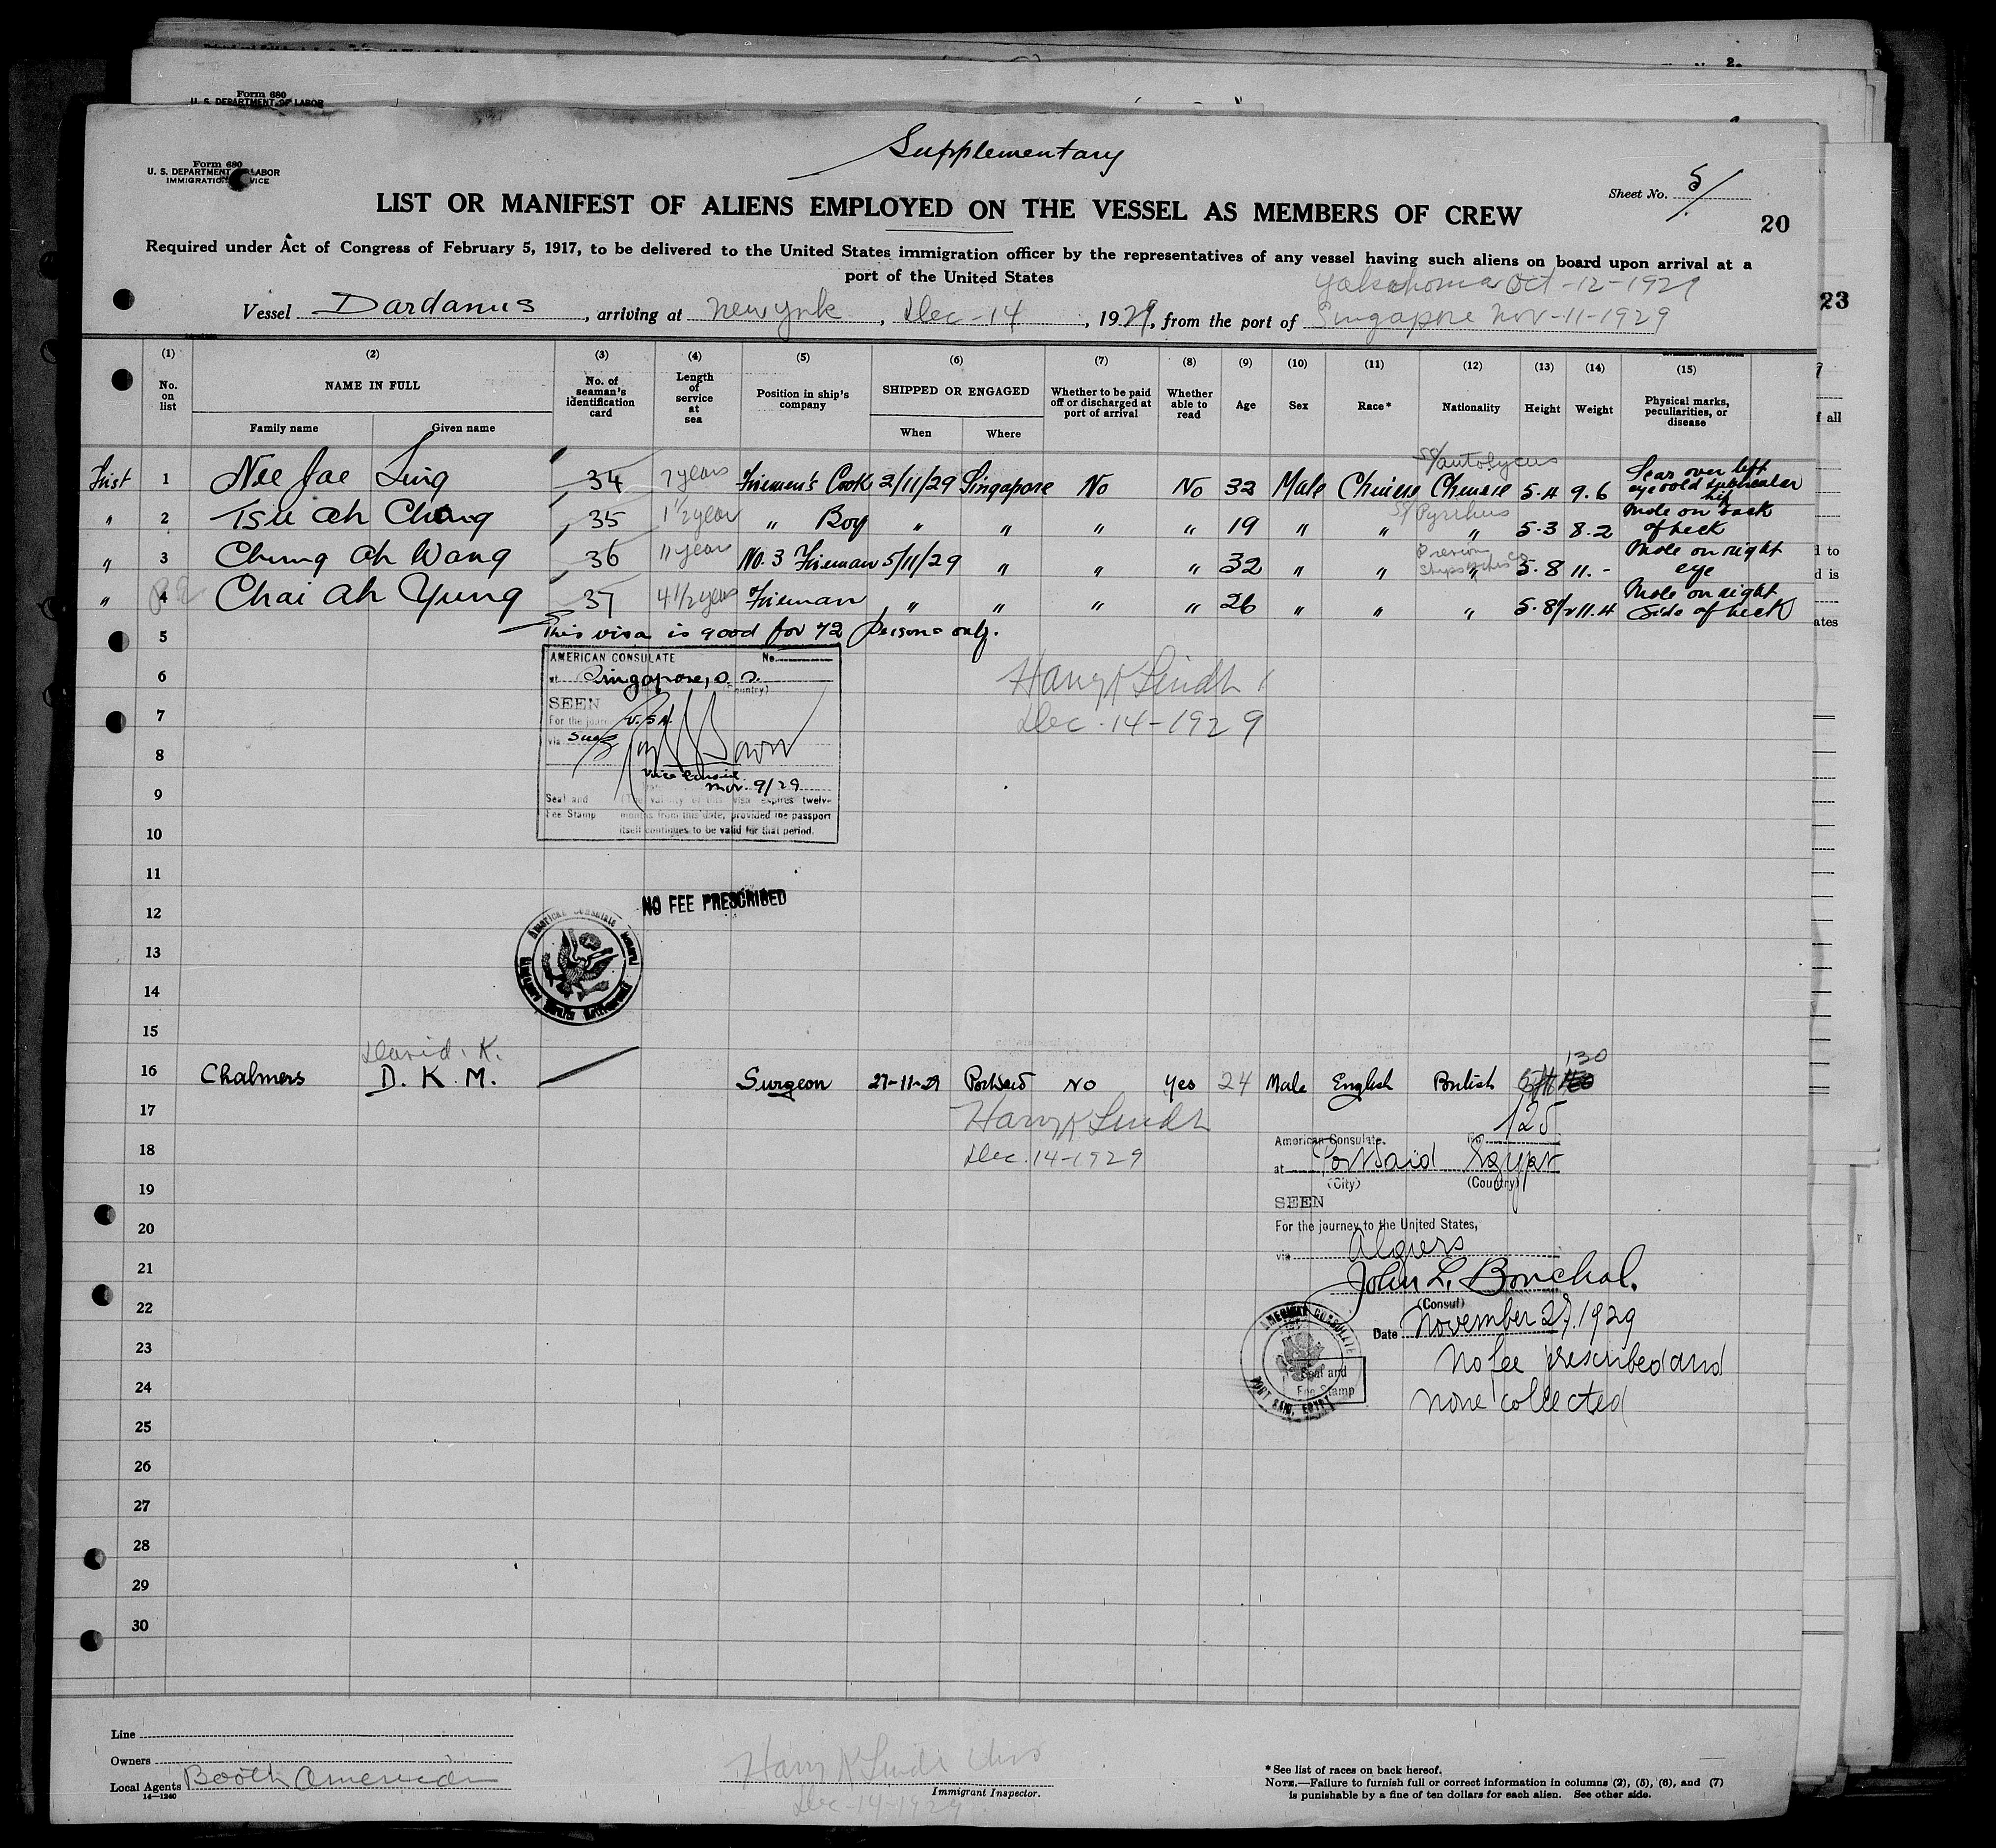 Form 680
U. S. DEPARTMENT OF LABOR
Supplementary
Form 680
U. S. DEPARTMENT LABOR
IMMIGRATION VICE
Sheet No. 5/
LIST OR MANIFEST OF ALIENS EMPLOYED ON THE VESSEL AS MEMBERS OF CREW
20
Required under Act of Congress of February 5, 1917, to be delivered to the United States immigration officer by the representatives of any vessel having such aliens on board upon arrival at a
port of the United States
Yokohoma Oct-12-1929
23
Vessel Dardanus, arriving at New York, Dec-14, 1929, from the port of Singapore Nov-11-1929
(1) (2) (3) (4) (5) (6) (7) (8) (9) (10) (11) (12) (13) (14) (15)
No. on list
NAME IN FULL
Family name Given name
No. of seaman's identification card
Length of service at sea
Position in ship's company
SHIPPED OR ENGAGED
When Where
Whether to be paid off or discharged at port of arrival
Whether able to read
Age
Sex
Race*
Nationality
Height
Weight
Physical marks, peculiarities, or disease
S/S Autolycus
First 1 Nee Jae Ling 34 7 years Firemen's Cook 2/11/29 Singapore No No 32 Male Chinese Chinese 5.4 9.6 Scar over left eye
S/S Pyrrhus
" 2 Tsu Ah Chong 35 1½ year " Boy " " " " 19 " " " 5.3 8.2 Mole on back of neck
" 3 Chung Ah Wang 36 11 years No. 3 Fireman 5/11/29 " " " 32 " " " 5.8 11.- Mole on right eye
" 4 Chai Ah Yung 37 4½ years Fireman " " " " 26 " " " 5.8½ 11.4 Mole on right side of neck
5
This visa is good for 42 persons only.
AMERICAN CONSULATE No.
at Singapore, S. S.
(Country)
SEEN
For the journ U.S.A.
via Suez
Vice Consul
Nov. 9/29
Seal and Fee Stamp
(The validity of this visa expires twelve months from this date, provided the passport itself continues to be valid for that period.
Harry K Lindh
Dec-14-1929
6
7
8
9
10
11
NO FEE PRESCRIBED
12
American Consulate
13
14
15
David. K.
16 Chalmers D. K. M. Surgeon 27-11-29 Portsaid No Yes 24 Male English British 130
17
Harry K Lindh
Dec. 14-1929
18
19
20
21
22
23
24
25
26
27
28
29
30
American Consulate, No. 125
at Port Said Egypt
(City) (Country)
SEEN
For the journey to the United States,
via Algiers
John L. Bouchal.
(Consul)
Date November 27, 1929
AMERICAN CONSULATE
PORT SAID, EGYPT
Seal and
Fee Stamp
No fee prescribed and
none collected
Line
Owners
Local Agents Booth American
14-1240
Harry K Lindh
Immigrant Inspector.
Dec-14-1929
* See list of races on back hereof.
NOTE.—Failure to furnish full or correct information in columns (2), (5), (6), and (7)
is punishable by a fine of ten dollars for each alien. See other side.